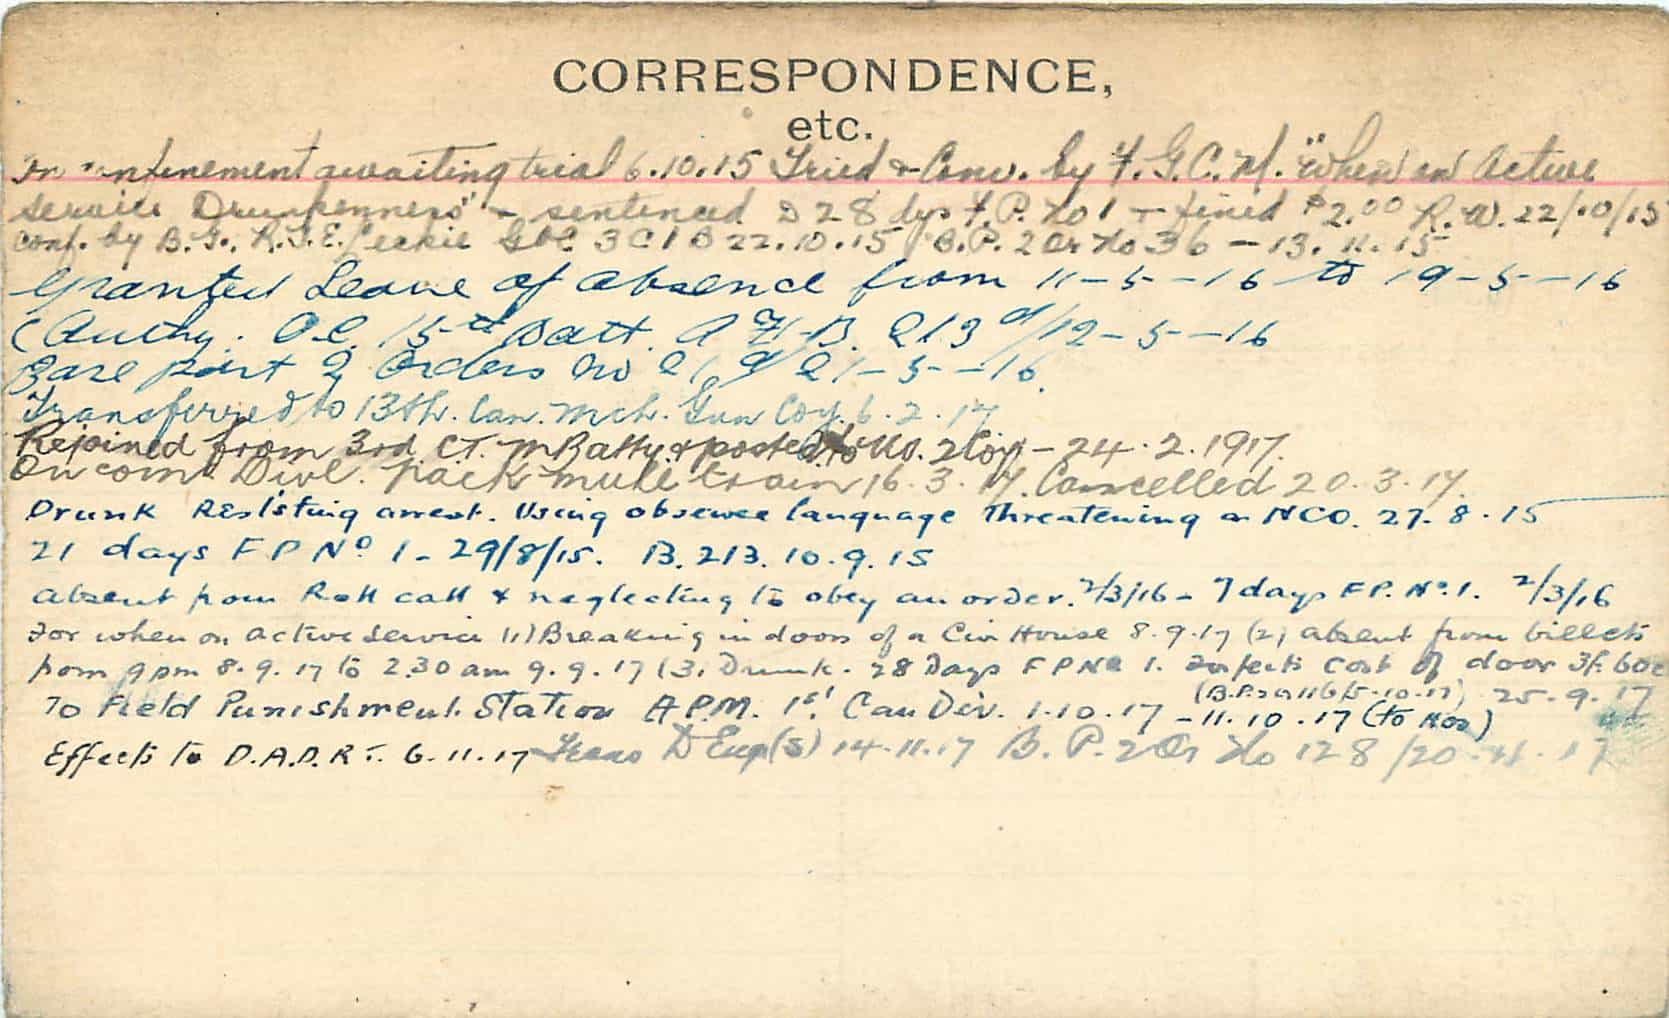 CORRESPONDENCE,
etc.
In confinement awaiting trial 6.10.15 Tried & Conv. by F.G.C.M. "When on Active
Service Drunkenness" - sentenced to 28 dys F.P. No 1 + fined $2.00 R.W. 22/10/15
conf. by B.G. R.G.E. Leckie GOC 3 C I B 22.10.15 B.P. 2 Or No 36 - 13.11.15
Granted Leave of absence from 11-5-16 to 19-5-16
(Authy. O.C. 15th Batt. A.F. B. 213 d/12-5-16
Base part 2 Orders No 21 d/ 21-5-16.
Transferred to 13th. Can. Mch. Gun Coy. 6.2.17
Rejoined from 3rd C.T.M Batty & posted to No. 2 Coy - 24.2.1917.
On com. Divl. pack mule train 16.3.17. Cancelled 20.3.17.
Drunk Resisting arrest. Using obscene language Threatening a NCO. 27.8.15
21 days F P No 1 - 29/8/15. B.213. 10.9.15
Absent from Roll call & neglecting to obey an order. 2/3/16 - 7 days F.P. No. 1. 2/3/16
For when on active service (1) Breaking in doors of a Civ House 8.9.17 (2) absent from billets
from 9 pm 8.9.17 to 2.30 am 9.9.17 (3) Drunk. 28 Days F P No 1. Forfeits cost of door 3f. 60c
25-9.17
To Field Punishment Station A.P.M. 1st Can Div. 1.10.17 - 11.10.17 (to Hos)
Effects to D.A.D.R.T. 6.11.17 Trans D Eng (S) 14.11.17 B.P. 2 Or No 128/20.11.17